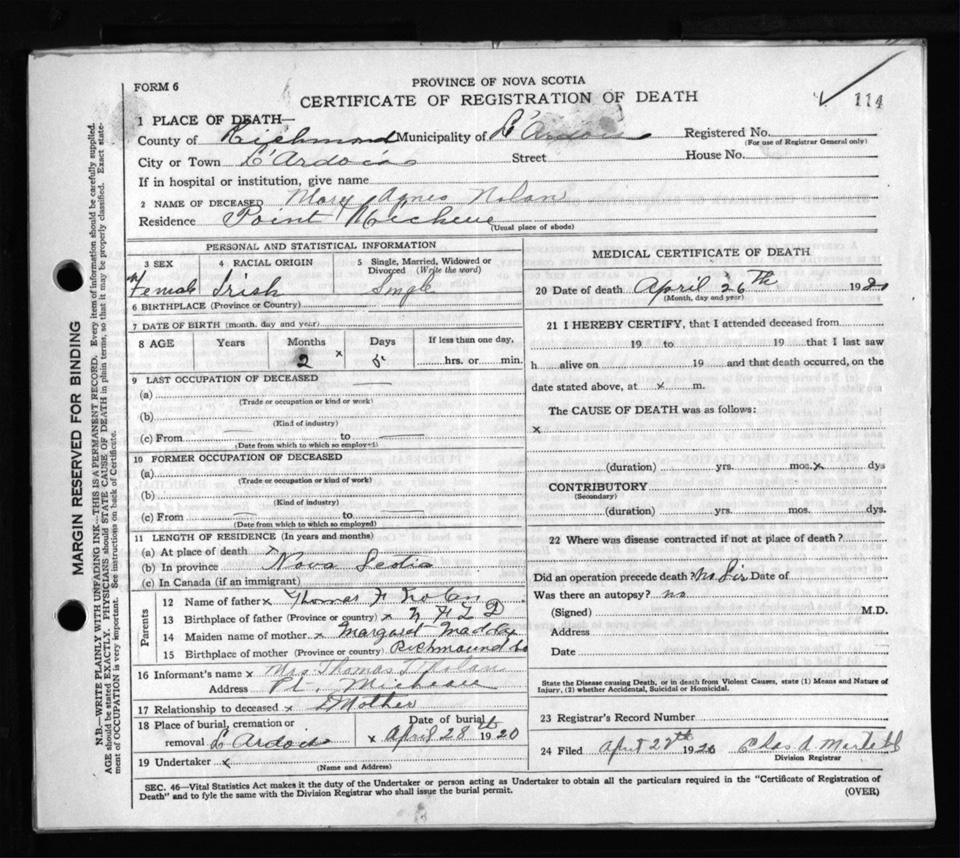 FORM 6
PROVINCE OF NOVA SCOTIA
CERTIFICATE OF REGISTRATION OF DEATH
114
1 PLACE OF DEATH—
County of Richmond Municipality of L'Ardois Registered No.
(For use of Registrar General only)
City or Town L'Ardois Street House No.
If in hospital or institution, give name
2 NAME OF DECEASED Mary Agnes Nolan
Residence Point Micheau
(Usual place of abode)
PERSONAL AND STATISTICAL INFORMATION
3 SEX 4 RACIAL ORIGIN 5 Single, Married, Widowed or Divorced (Write the word)
Female Irish Single
6 BIRTHPLACE (Province or Country)
7 DATE OF BIRTH (month, day and year)
8 AGE Years Months Days If less than one day,
2 x hrs. or min.
9 LAST OCCUPATION OF DECEASED
(a)
(Trade or occupation or kind or work)
(b)
(Kind of industry)
(c) From to
(Date from which to which so employed)
10 FORMER OCCUPATION OF DECEASED
(a)
(Trade or occupation or kind or work)
(b)
(Kind of industry)
(c) From to
(Date from which to which so employed)
11 LENGTH OF RESIDENCE (In years and months)
(a) At place of death x
(b) In province Nova Scotia
(c) In Canada (if an immigrant)
Parents
12 Name of father x Thomas F Nolan
13 Birthplace of father (Province or country) x N F L D
14 Maiden name of mother x Margaret Maddox
15 Birthplace of mother (Province or country) Richmound Co
16 Informant's name x Mrs Thomas Nolan
Address Pt. Micheau
17 Relationship to deceased x Mother
18 Place of burial, cremation or removal L'Ardois
Date of burial
x April 28th 1920
19 Undertaker x
(Name and Address)
MEDICAL CERTIFICATE OF DEATH
20 Date of death April 26th 1920
(Month, day and year)
21 I HEREBY CERTIFY, that I attended deceased from
19 to 19 that I last saw
h alive on 19 and that death occurred, on the
date stated above, at x m.
The CAUSE OF DEATH was as follows:
x
(duration) yrs. mos. x dys
CONTRIBUTORY
(Secondary)
(duration) yrs. mos. dys.
22 Where was disease contracted if not at place of death?
Did an operation precede death? No Sir Date of
Was there an autopsy? no
(Signed) M.D.
Address
Date
State the Disease causing Death, or in death from Violent Causes, state (1) Means and Nature of
Injury, (2) whether Accidental, Suicidal or Homicidal.
23 Registrar's Record Number
24 Filed April 28th 1920 Chas A Martell
Division Registrar
SEC. 46—Vital Statistics Act makes it the duty of the Undertaker or person acting as Undertaker to obtain all the particulars required in the "Certificate of Registration of
Death" and to fyle the same with the Division Registrar who shall issue the burial permit.
(OVER)
MARGIN RESERVED FOR BINDING
N.B.—WRITE PLAINLY WITH UNFADING INK—THIS IS A PERMANENT RECORD. Every item of information should be carefully supplied.
AGE should be stated EXACTLY. PHYSICIANS should STATE CAUSE OF DEATH in plain terms, so that it may be properly classified. Exact state-
ment of OCCUPATION is very important. See instructions on back of Certificate.